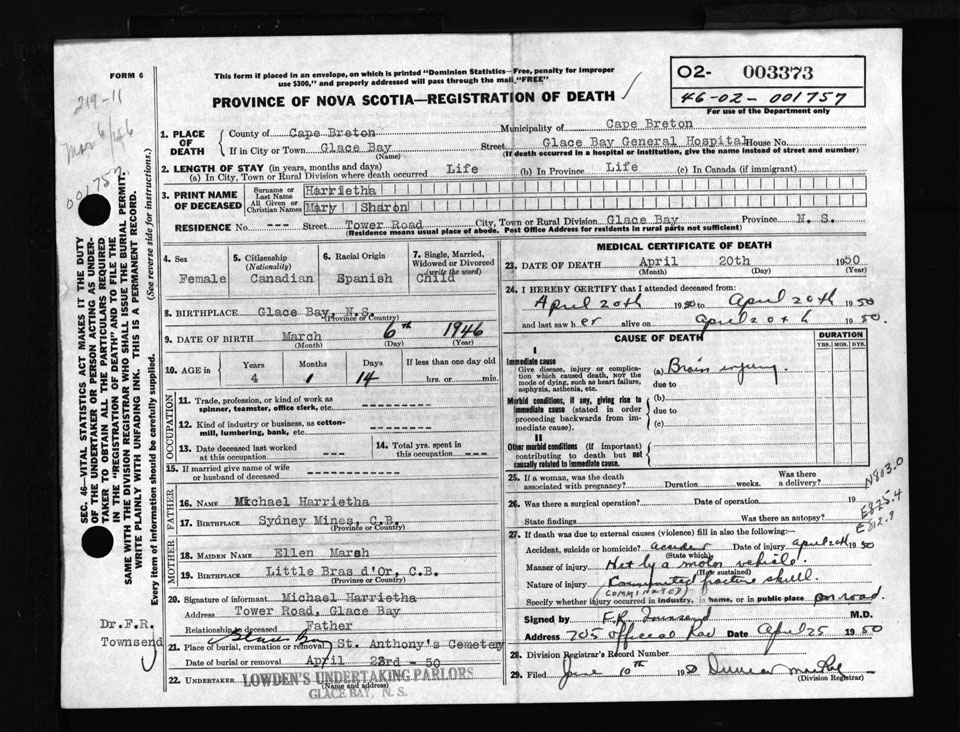 FORM 6
219-11
Mar 6/46
001757
This form if placed in an envelope, on which is printed "Dominion Statistics—Free, penalty for improper
use $300," and properly addressed will pass through the mail "FREE"
PROVINCE OF NOVA SCOTIA—REGISTRATION OF DEATH
02- 003373
46-02-001757
For use of the Department only
SEC. 46—VITAL STATISTICS ACT MAKES IT THE DUTY
OF THE UNDERTAKER OR PERSON ACTING AS UNDER-
TAKER TO OBTAIN ALL THE PARTICULARS REQUIRED
IN THE "REGISTRATION OF DEATH" AND TO FILE THE
SAME WITH THE DIVISION REGISTRAR WHO SHALL ISSUE THE BURIAL PERMIT.
WRITE PLAINLY WITH UNFADING INK. THIS IS A PERMANENT RECORD.
Every item of information should be carefully supplied. (See reverse side for instructions.)
1. PLACE OF DEATH
County of Cape Breton Municipality of Cape Breton
If in City or Town Glace Bay Street Glace Bay General Hospital House No.
(Name) (If death occurred in a hospital or institution, give the name instead of street and number)
2. LENGTH OF STAY (in years, months and days)
(a) In City, Town or Rural Division where death occurred Life (b) In Province Life (c) In Canada (if immigrant)
3. PRINT NAME OF DECEASED
Surname or Last Name Harrietha
All Given or Christian Names Mary Sharon
RESIDENCE No. --- Street Tower Road City, Town or Rural Division Glace Bay Province N. S.
(Residence means usual place of abode. Post Office Address for residents in rural parts not sufficient)
4. Sex Female
5. Citizenship (Nationality) Canadian
6. Racial Origin Spanish
7. Single, Married, Widowed or Divorced (write the word) Child
8. BIRTHPLACE Glace Bay, N.S.
(Province or Country)
9. DATE OF BIRTH March 6th 1946
(Month) (Day) (Year)
10. AGE in Years Months Days If less than one day old
4 1 14 hrs. or min.
OCCUPATION
11. Trade, profession, or kind of work as
spinner, teamster, office clerk, etc.
12. Kind of industry or business, as cotton-
mill, lumbering, bank, etc.
13. Date deceased last worked
at this occupation ---
14. Total yrs. spent in
this occupation ---
15. If married give name of wife
or husband of deceased
FATHER
16. NAME Michael Harrietha
17. BIRTHPLACE Sydney Mines, C.B.
(Province or Country)
MOTHER
18. MAIDEN NAME Ellen Marsh
19. BIRTHPLACE Little Bras d'Or, C.B.
(Province or Country)
20. Signature of informant Michael Harrietha
Address Tower Road, Glace Bay
Relationship to deceased Father
Dr.F.R.
Townsend
Glace Bay
21. Place of burial, cremation or removal St. Anthony's Cemetery
Date of burial or removal April 23rd - 50
22. UNDERTAKER LOWDEN'S UNDERTAKING PARLORS
(Name and address)
GLACE BAY, N. S.
MEDICAL CERTIFICATE OF DEATH
23. DATE OF DEATH April 20th 1950
(Month) (Day) (Year)
24. I HEREBY CERTIFY that I attended deceased from
April 20th 1950 to April 20th 1950
and last saw her alive on April 20th 1950.
CAUSE OF DEATH
DURATION
YRS. MOS. DYS.
I
Immediate cause
Give disease, injury or complica-
tion which caused death, NOT the
mode of dying, such as heart failure,
asphyxia, asthenia, etc.
(a) Brain injury.
due to
Morbid conditions, if any, giving rise to
immediate cause (stated in order
proceeding backwards from im-
mediate cause).
(b)
due to
(c)
II
Other morbid conditions (if important)
contributing to death but not
causally related to immediate cause.
25. If a woman, was the death
associated with pregnancy? Duration weeks. Was there
a delivery?
26. Was there a surgical operation? Date of operation 19
State findings Was there an autopsy?
N803.0
E825.4
E812.9
27. If death was due to external causes (violence) fill in also the following:
Accident, suicide or homicide? accident Date of injury april 20th 1950
(State which)
Manner of injury Hit by a motor vehicle.
(How sustained)
Nature of injury Comminuted fracture skull.
(COMMINUTED)
Specify whether injury occurred in industry, in home, or in public place on road.
Signed by F.R. Townsend M.D.
Address 205 Date April 25 1950
28. Division Registrar's Record Number
29. Filed June 10th 1950 Duncan
(Division Registrar)